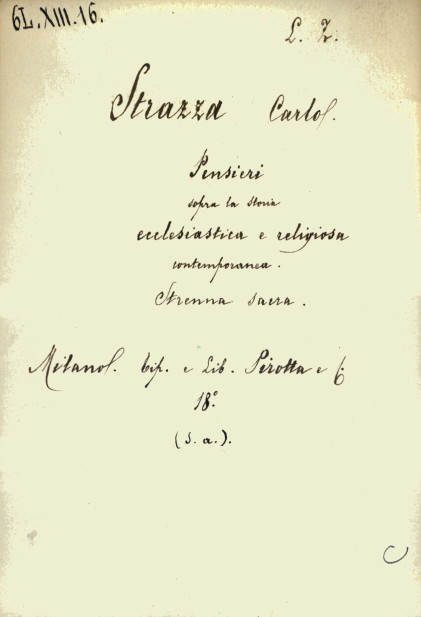 6L.XIII.16.
L. Z.
Strazza Carlo.
Pensieri
sopra la storia
ecclesiastica e religiosa
contemporanea.
Strenna sacra.
Milano. Tip. e Lib. Pirotta e C.
18°.
(s. a.).
C